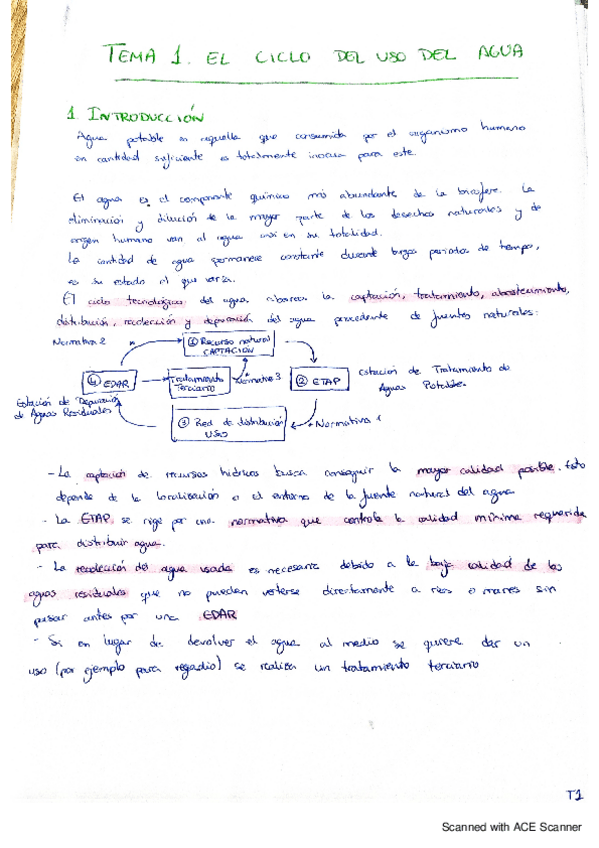 TEMA 1. EL CICLO DEL USO DEL AGUA
1. INTRODUCCIÓN
Agua potable es aquella que consumida por el organismo humano
en cantidad suficiente es totalmente inocua para este.
El agua es el componente químico más abundante de la biosfera. La
eliminación y dilución de la mayor parte de los desechos naturales y de
origen humano van al agua casi en su totalidad.
La cantidad de agua permanece constante durante largos periodos de tiempo,
es su estado el que varía.
El ciclo tecnológico del agua abarca la captación, tratamiento, abastecimiento,
distribución, recolección y depuración del agua procedente de fuentes naturales:
Normativa 2
① Recurso natural
CAPTACIÓN
④ EDAR
Tratamiento
Terciario
Normativa 3
② ETAP
Estación de Tratamiento de
Aguas Potables.
Estación de Depuración
de Aguas Residuales
③ Red de distribución
USO
Normativa 1
- La captación de recursos hídricos busca conseguir la mayor calidad posible. Esto
depende de la localización o el entorno de la fuente natural del agua
- La ETAP se rige por una normativa que controla la calidad mínima requerida
para distribuir agua.
- La recolección del agua usada es necesaria debido a la baja calidad de las
aguas residuales que no pueden verterse directamente a ríos o mares sin
pasar antes por una EDAR
- Si en lugar de devolver el agua al medio se quiere dar un
uso (por ejemplo para regadío) se realiza un tratamiento terciario
T1
Scanned with ACE Scanner